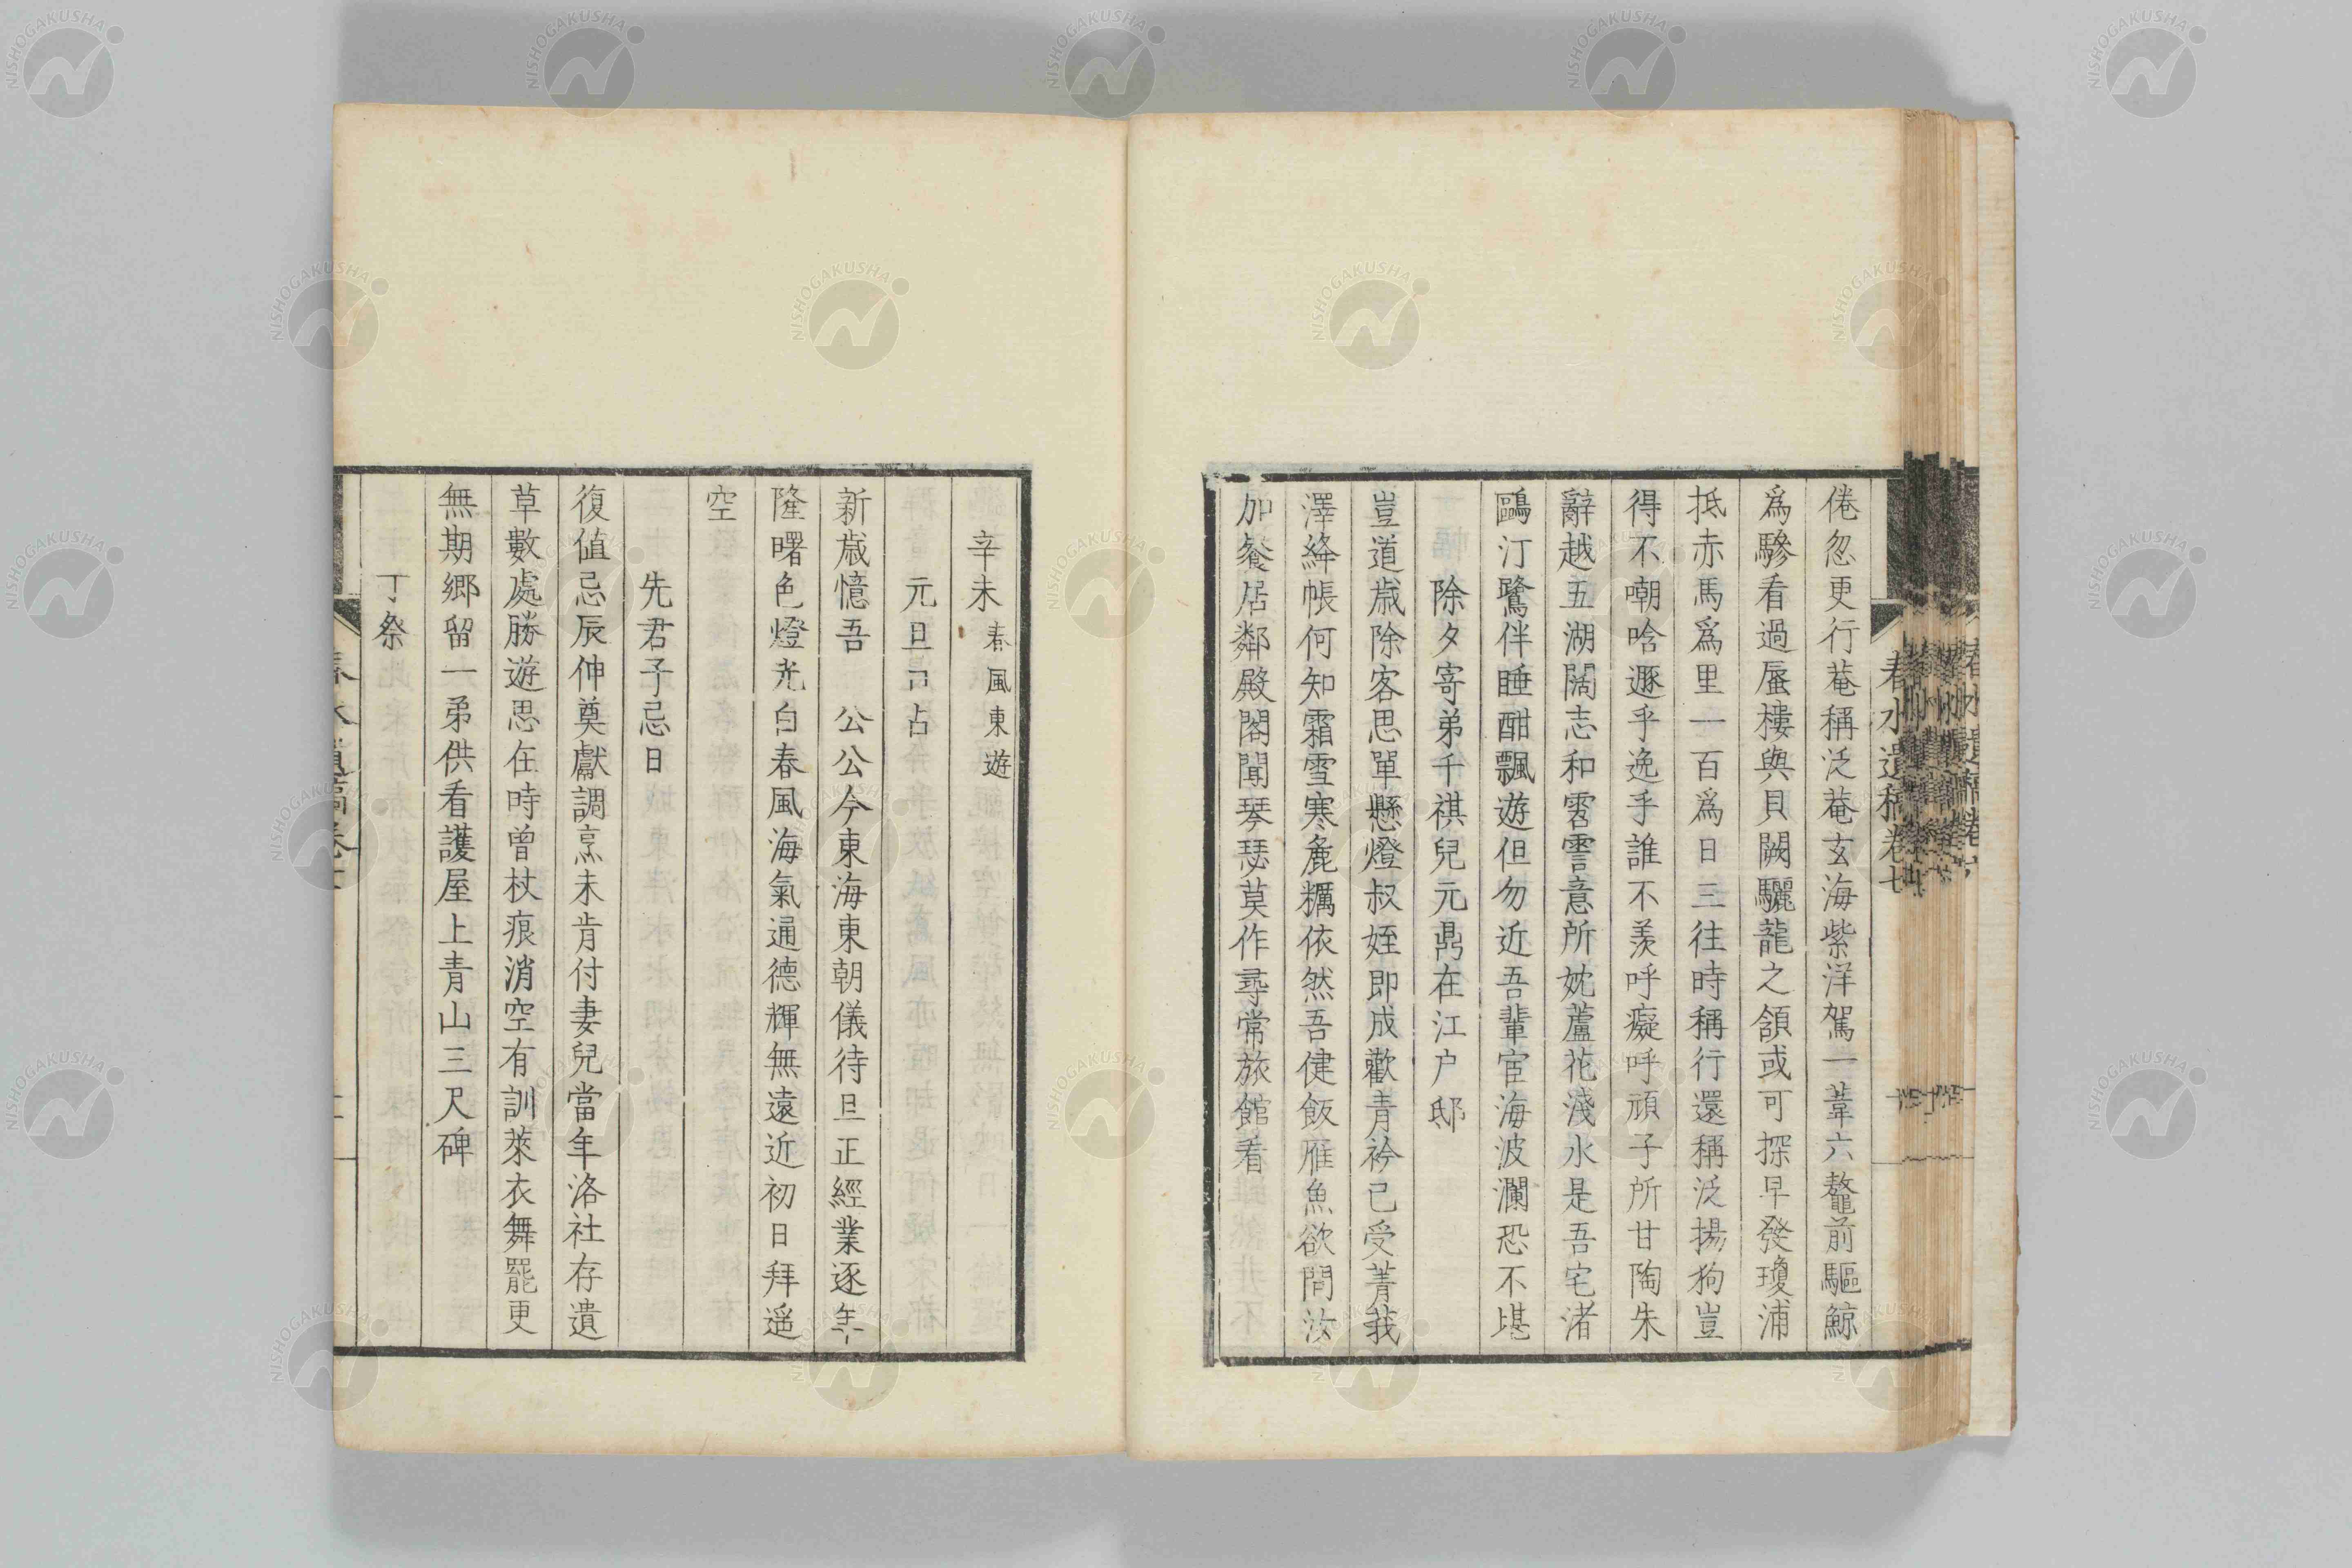 倦忽更行菴稱泛菴玄海紫洋駕一葦六鼇前驅鯨
爲驂看過蜃樓與貝闕驪龍之頷或可探早發瓊浦
抵赤馬爲里一百爲日三往時稱行還稱泛揚狗豈
得不嘲唅遯乎逸乎誰不羨呼癡呼頑子所甘陶朱
辭越五湖闊志和霅霅意所妉蘆花淺水是吾宅渚
鷗汀鷺伴睡酣飄遊但勿近吾輩宦海波瀾恐不堪
除夕寄弟千祺兒元鼎在江户邸
豈道歳除客思單懸燈叔姪即成歡青衿已受菁莪
澤絳帳何知霜雪寒麁糲依然吾健飯雁魚欲問汝
加餐居鄰殿閣聞琴瑟莫作尋常旅館看
春水遺稿卷七
辛未春風東遊
元旦口占
新歳憶吾 公公今東海東朝儀待旦正經業逐年
隆曙色燈光白春風海氣通德輝無遠近初日拜遥
空
先君子忌日
復値忌辰伸奠獻調烹未肯付妻兒當年洛社存遺
草數處勝遊思在時曾杖痕消空有訓萊衣舞罷更
無期郷留一弟供看護屋上青山三尺碑
丁祭
NISHOGAKUSHA